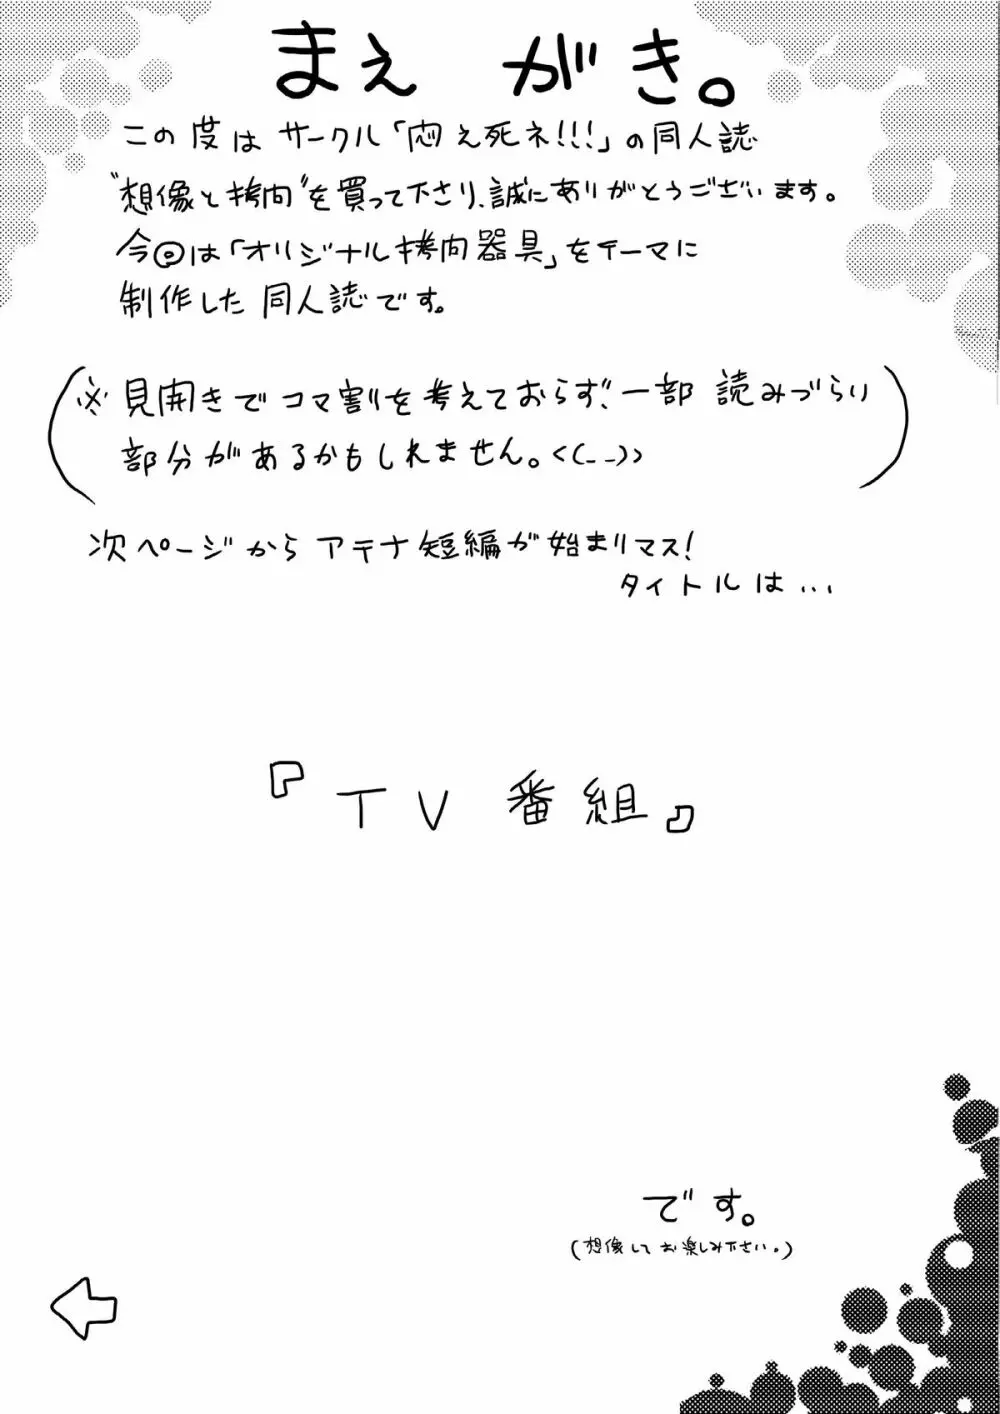 まえがき。
この度はサークル「悶え死ネ!!!」の同人誌
"想像と拷問"を買って下さり、誠にありがとうございます。
今回は「オリジナル拷問器具」をテーマに
制作した同人誌です。
(※見開きでコマ割りを考えておらず、一部読みづらい
部分があるかもしれません。<(_ _)>)
次ページからアテナ短編が始まりマス!
タイトルは...
『TV番組』
です。
(想像してお楽しみ下さい。)